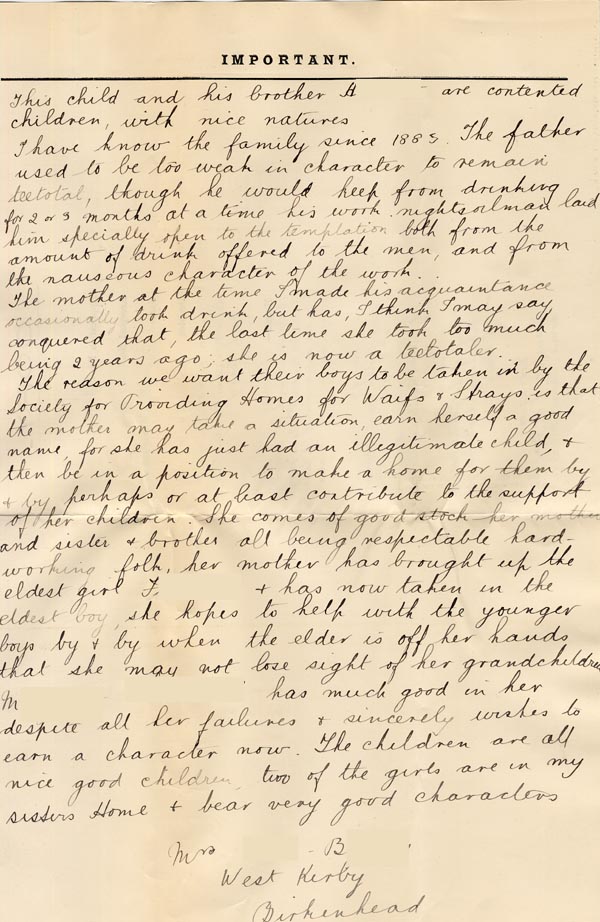 IMPORTANT.
This child and his brother A are contented
children, with nice natures
I have know the family since 1883. The father
used to be too weak in character to remain
teetotal, though he would keep from drinking
for 2 or 3 months at a time his work nightsoilman laid
him specially open to the temptation both from the
amount of drink offered to the men, and from
the nauseous character of the work.
The mother at the time I made his acquaintance
occasionally took drink, but has, I think I may say,
conquered that, the last time she took too much
being 2 years ago; she is now a teetotaler.
The reason we want their boys to be taken in by the
Society for Providing Homes for Waifs & Strays is that
the mother may take a situation, earn herself a good
name, for she has just had an illegitimate child, &
then be in a position to make a home for them by
& by perhaps or at least contribute to the support
of her children. She comes of good stock her mother
and sister & brother all being respectable hard-
working folk, her mother has brought up the
eldest girl F. & has now taken in the
eldest boy, she hopes to help with the younger
boys by & by when the elder is off her hands
that she may not lose sight of her grandchildren
M has much good in her
despite all her failures & sincerely wishes to
earn a character now. The children are all
nice good children, two of the girls are in my
sisters Home & bear very good characters
Mrs B
West Kirby
Birkenhead